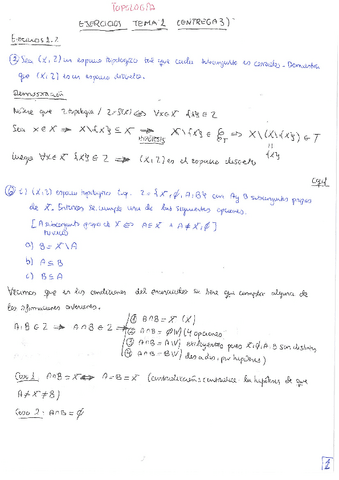 TOPOLOGÍA
EJERCICIOS TEMA 1 (ENTREGA 3)
Ejercicios 1.2
③ Sea (X,τ) un espacio topológico tal que cada subconjunto es cerrado. Demuestra
que (X,τ) es un espacio discreto.
Demostración
Nótese que τ topología / τ=P(X) ⇔ ∀x∈X {x}∈τ
Sea x∈X ⇒ X\{x} ⊆ X ⇒ X\{x} ∈ ⇒ X\(X\{x}) ∈ T
{x}
Luego ∀x∈X {x}∈τ ⇒ (X,τ) es el espacio discreto
⑥ Si (X,τ) espacio topológico t.q. τ={X,∅,A,B} con A y B subconjuntos propios
de X. Entonces se cumple una de las siguientes opciones.
[A subconjunto propio de X ⇔ A⊆X ∧ A≠X,∅]
a) B = X\A
b) A ⊆ B
c) B ⊆ A
Veamos que en las condiciones del enunciado se tiene que cumplir alguna de
las afirmaciones anteriores.
A,B∈τ ⇒ A∩B∈τ
① A∩B=X (X)
② A∩B=∅ (4 opciones
③ A∩B=A excluyentes pues X,∅,A,B son distintos
④ A∩B=B dos a dos, por hipótesis)
Caso 1: A∩B=X ⇔ A=B=X (contradicción: contradice las hipótesis de que
A≠X≠B)
Caso 2: A∩B=∅
1